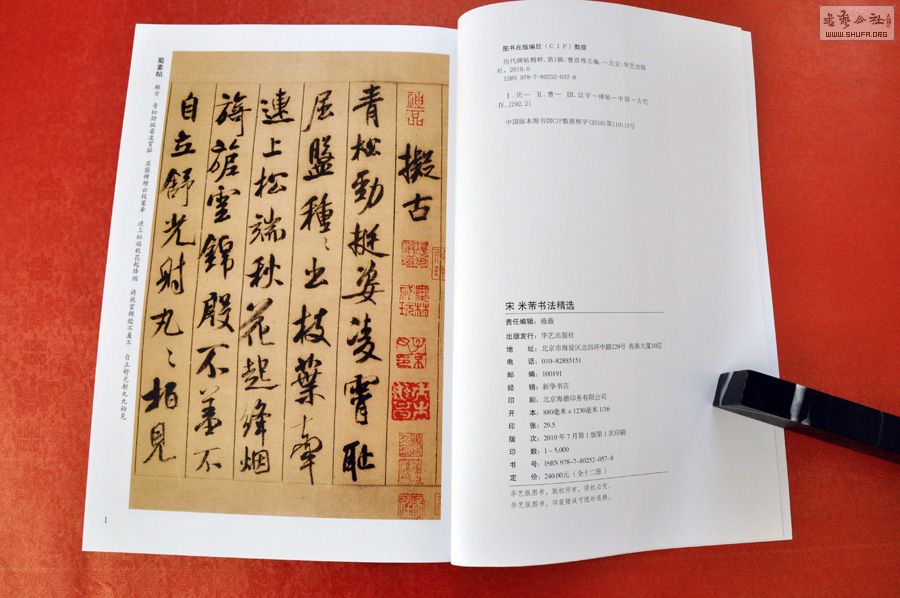 蜀素帖
擬古 青松勁挺姿凌霄耻 屈盤種種出枝葉牽 連上松端秋花起絳烟 旖旎雲錦殷不羞不 自立舒光射丸丸柏見
擬古
青松勁挺姿凌霄耻
屈盤種〻出枝葉牽
連上松端秋花起絳烟
旖旎雲錦殷不羞不
自立舒光射丸〻柏見
1
图书在版编目(CIP)数据
历代碑帖精粹.第1辑/曹彦伟主编.—北京:华艺出版
社,2010.6
ISBN 978-7-80252-057-8
Ⅰ.历… Ⅱ.曹… Ⅲ.汉字—碑帖—中国—古代
Ⅳ.J292.21
中国版本图书馆CIP数据核字(2010)第119115号
宋 米芾书法精选
责任编辑:薇薇
出版发行:华艺出版社
地 址:北京市海淀区北四环中路229号 海泰大厦10层
电 话:010-82885151
邮 编:100191
经 销:新华书店
印 刷:北京海德印务有限公司
开 本:880毫米×1230毫米 1/16
印 张:29.5
版 次:2010年7月第1版第1次印刷
印 数:1-5,000
书 号:ISBN 978-7-80252-057-8
定 价:240.00元(全十二册)
华艺版图书,版权所有,侵权必究。
华艺版图书,印装错误可随时退换。
WWW.SHUFA.ORG